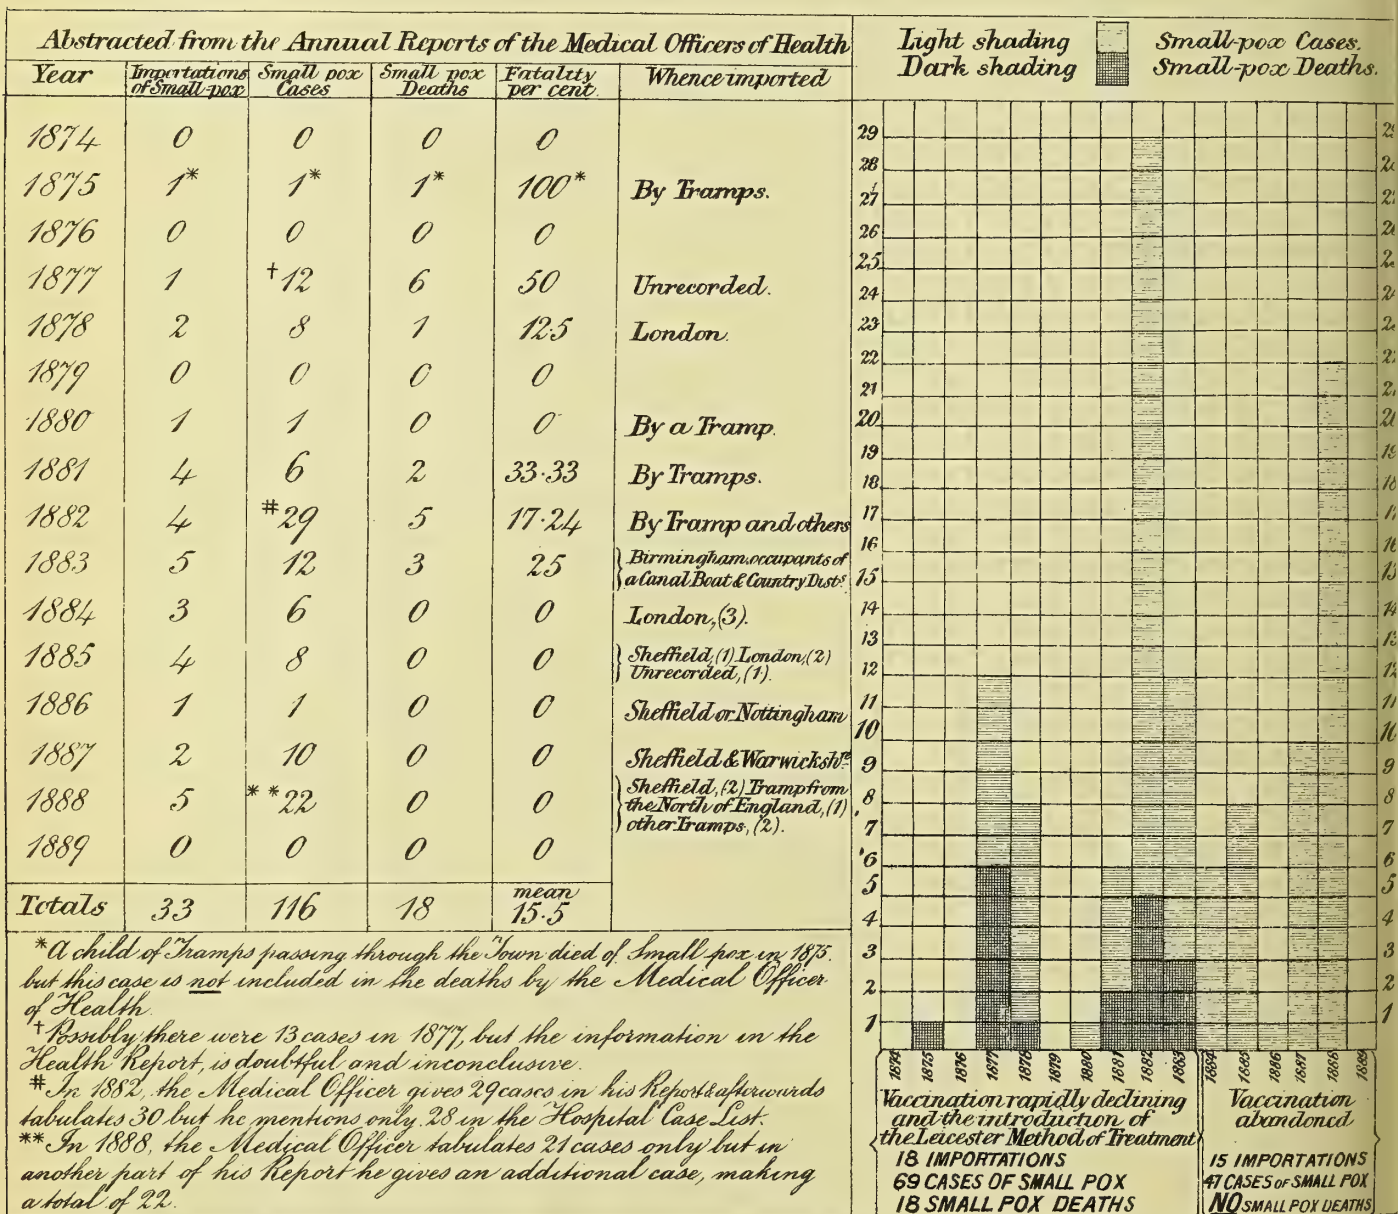 Abstracted from the Annual Reports of the Medical Officers of Health
Year Importations of Small-pox Small pox Cases Small pox Deaths Fatality per cent. Whence imported
1874 0 0 0 0
1875 1* 1* 1* 100* By Tramps.
1876 0 0 0 0
1877 1 †12 6 50 Unrecorded.
1878 2 8 1 12·5 London.
1879 0 0 0 0
1880 1 1 0 0 By a Tramp.
1881 4 6 2 33·33 By Tramps.
1882 4 #29 5 17·24 By Tramp and others
1883 5 12 3 25 Birmingham, occupants of
a Canal Boat & Country Dists.
1884 3 6 0 0 London, (3).
1885 4 8 0 0 Sheffield, (1) London, (2)
Unrecorded, (1).
1886 1 1 0 0 Sheffield or Nottingham
1887 2 10 0 0 Sheffield & Warwicksh^re
1888 5 **22 0 0 Sheffield, (2) Tramp from
the North of England, (1)
other Tramps, (2).
1889 0 0 0 0
Totals 33 116 18 mean 15·5
*A child of Tramps passing through the Town died of Small pox in 1875.
but this case is not included in the deaths by the Medical Officer
of Health.
†Possibly there were 13 cases in 1877, but the information in the
Health Report, is doubtful and inconclusive.
# In 1882, the Medical Officer gives 29 cases in his Report & afterwards
tabulates 30 but he mentions only 28 in the Hospital Case List.
** In 1888, the Medical Officer tabulates 21 cases only but in
another part of his Report he gives an additional case, making
a total of 22.
Light shading Small-pox Cases.
Dark shading Small-pox Deaths.
29
28
27
26
25
24
23
22
21
20
19
18
17
16
15
14
13
12
11
10
9
8
7
6
5
4
3
2
1
1874 1875 1876 1877 1878 1879 1880 1881 1882 1883 1884 1885 1886 1887 1888 1889
Vaccination rapidly declining
and the introduction of
the Leicester Method of Treatment
18 IMPORTATIONS
69 CASES OF SMALL POX
18 SMALL POX DEATHS
Vaccination
abandoned
15 IMPORTATIONS
47 CASES OF SMALL POX
NO SMALL POX DEATHS